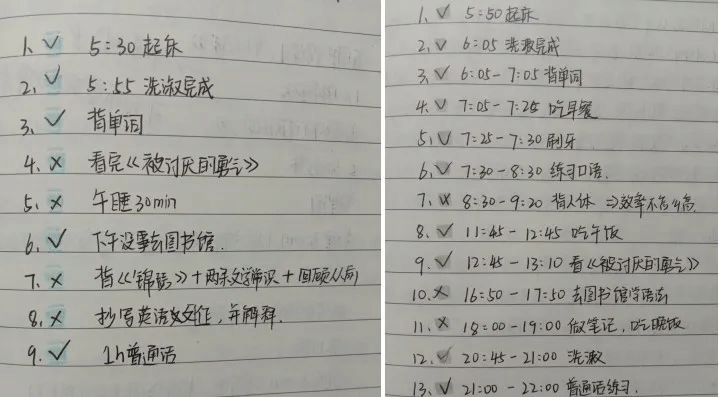 1、✓ 5:30 起床
2、✓ 5:55 洗漱完成
3、✓ 背单词
4、× 看完《被讨厌的勇气》
5、× 午睡30min
6、✓ 下午没事去图书馆.
7、× 背《锦瑟》+两条文学常识+回顾从前
8、× 抄写英语作文,并解释.
9、✓ 1h普通话
1、✓ 5:50起床
2、✓ 6:05 洗漱完成
3、✓ 6:05-7:05 背单词
4、✓ 7:05-7:25 吃早餐
5、✓ 7:25-7:30 刷牙
6、✓ 7:30-8:30 练习口语.
7、× 8:30-9:20 背人体 ⇒效率不怎么高.
8、✓ 11:45-12:45 吃午饭
9、✓ 12:45-13:10 看《被讨厌的勇气》
10、× 16:50-17:50 去图书馆学语法
11、× 18:00-19:00 做笔记,吃晚饭
12、✓ 20:45-21:00 洗漱
13、✓ 21:00-22:00 普通话练习.